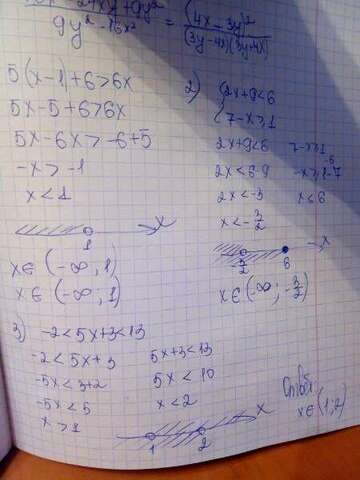 9y² - 16x² = (4x - 3y)² / (3y-4x)(3y+4x)
5(x-1)+6>6x
5x-5+6>6x
5x-6x>-6+5
-x>-1
x<1
1 x
x∈(-∞; 1)
x∈(-∞; 1)
2) {2x+9<6
7-x≥1
2x+9<6 7-x≥1
2x<6-9 -x≥1-7
2x<-3 x≤6
x<-3/2
-3/2 6 x
x∈(-∞; -3/2)
3) -2<5x+3<13
-2<5x+3 5x+3<13
-5x<3+2 5x<10
-5x<5 x<2
x>1
1 2 x
x∈(1;2)